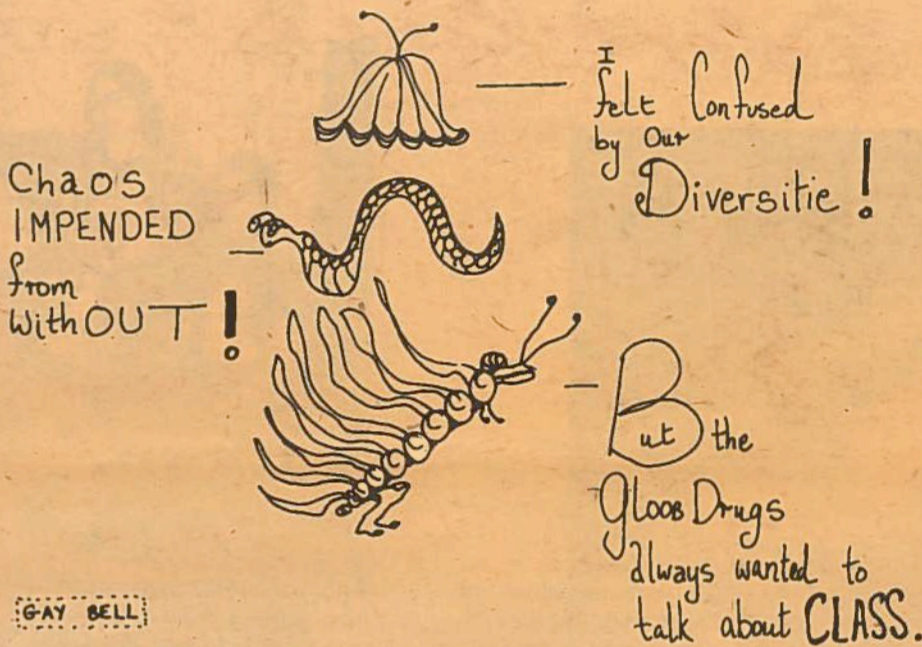 I
felt Confused
by Our
Diversitie!
Chaos
IMPENDED
from
WithOUT!
But the
GlooB Drugs
always wanted to
talk about CLASS.
GAY BELL